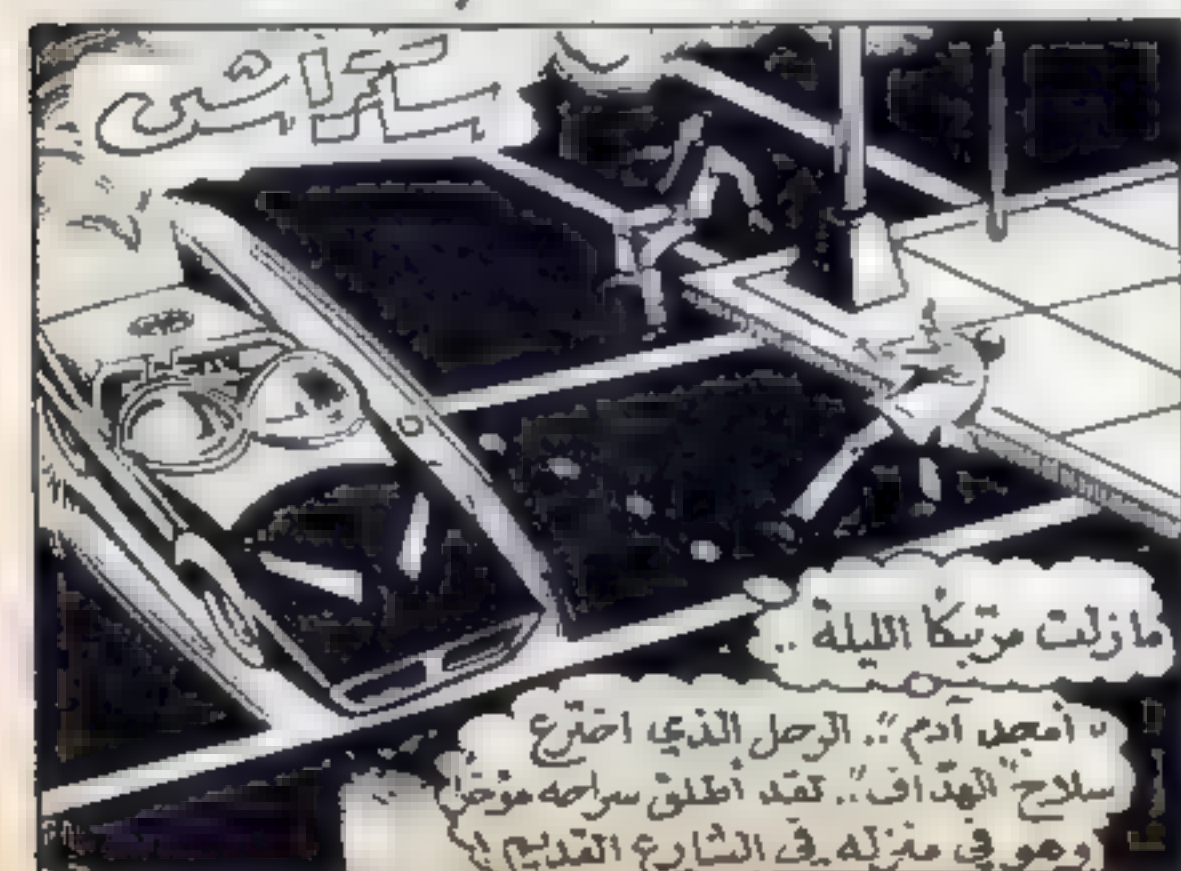 كراش
ما زلت مرتبكًا الليلة ..
" أمجد آدم ".. الرجل الذي اخترع
سلاح "الهدّاف".. لقد أطلق سراحه مؤخرًا
وهو في منزله في الشارع القديم !